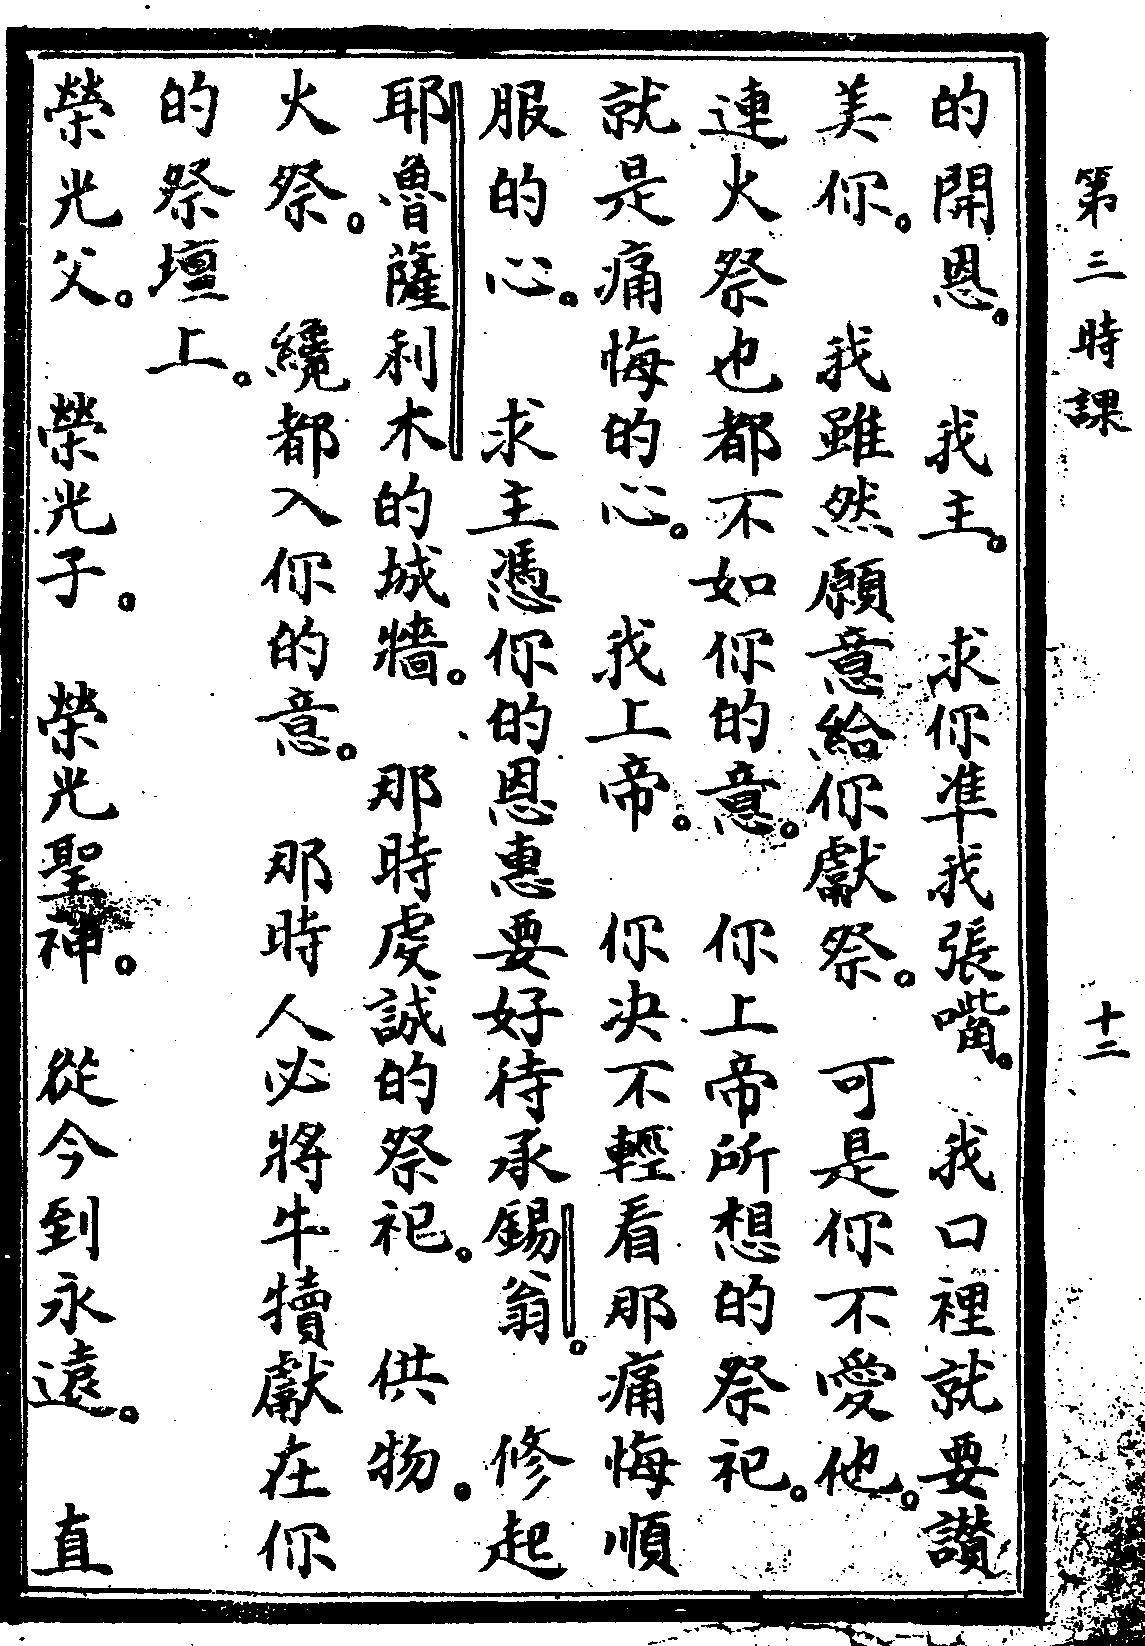 第三時課 十二
的開恩。 我主。 求你準我張嘴。 我口裡就要讚
美你。 我雖然願意給你獻祭。 可是你不愛他。
連火祭也都不如你的意。 你上帝所想的祭祀。
就是痛悔的心。 我上帝。 你决不輕看那痛悔順
服的心。 求主憑你的恩惠要好待承錫翁。 修起
耶魯薩利木的城牆。 那時虔誠的祭祀。 供物。
火祭。 纔都入你的意。 那時人必將牛犢獻在你
的祭壇上。
榮光父。 榮光子。 榮光聖神。 從今到永遠。 直